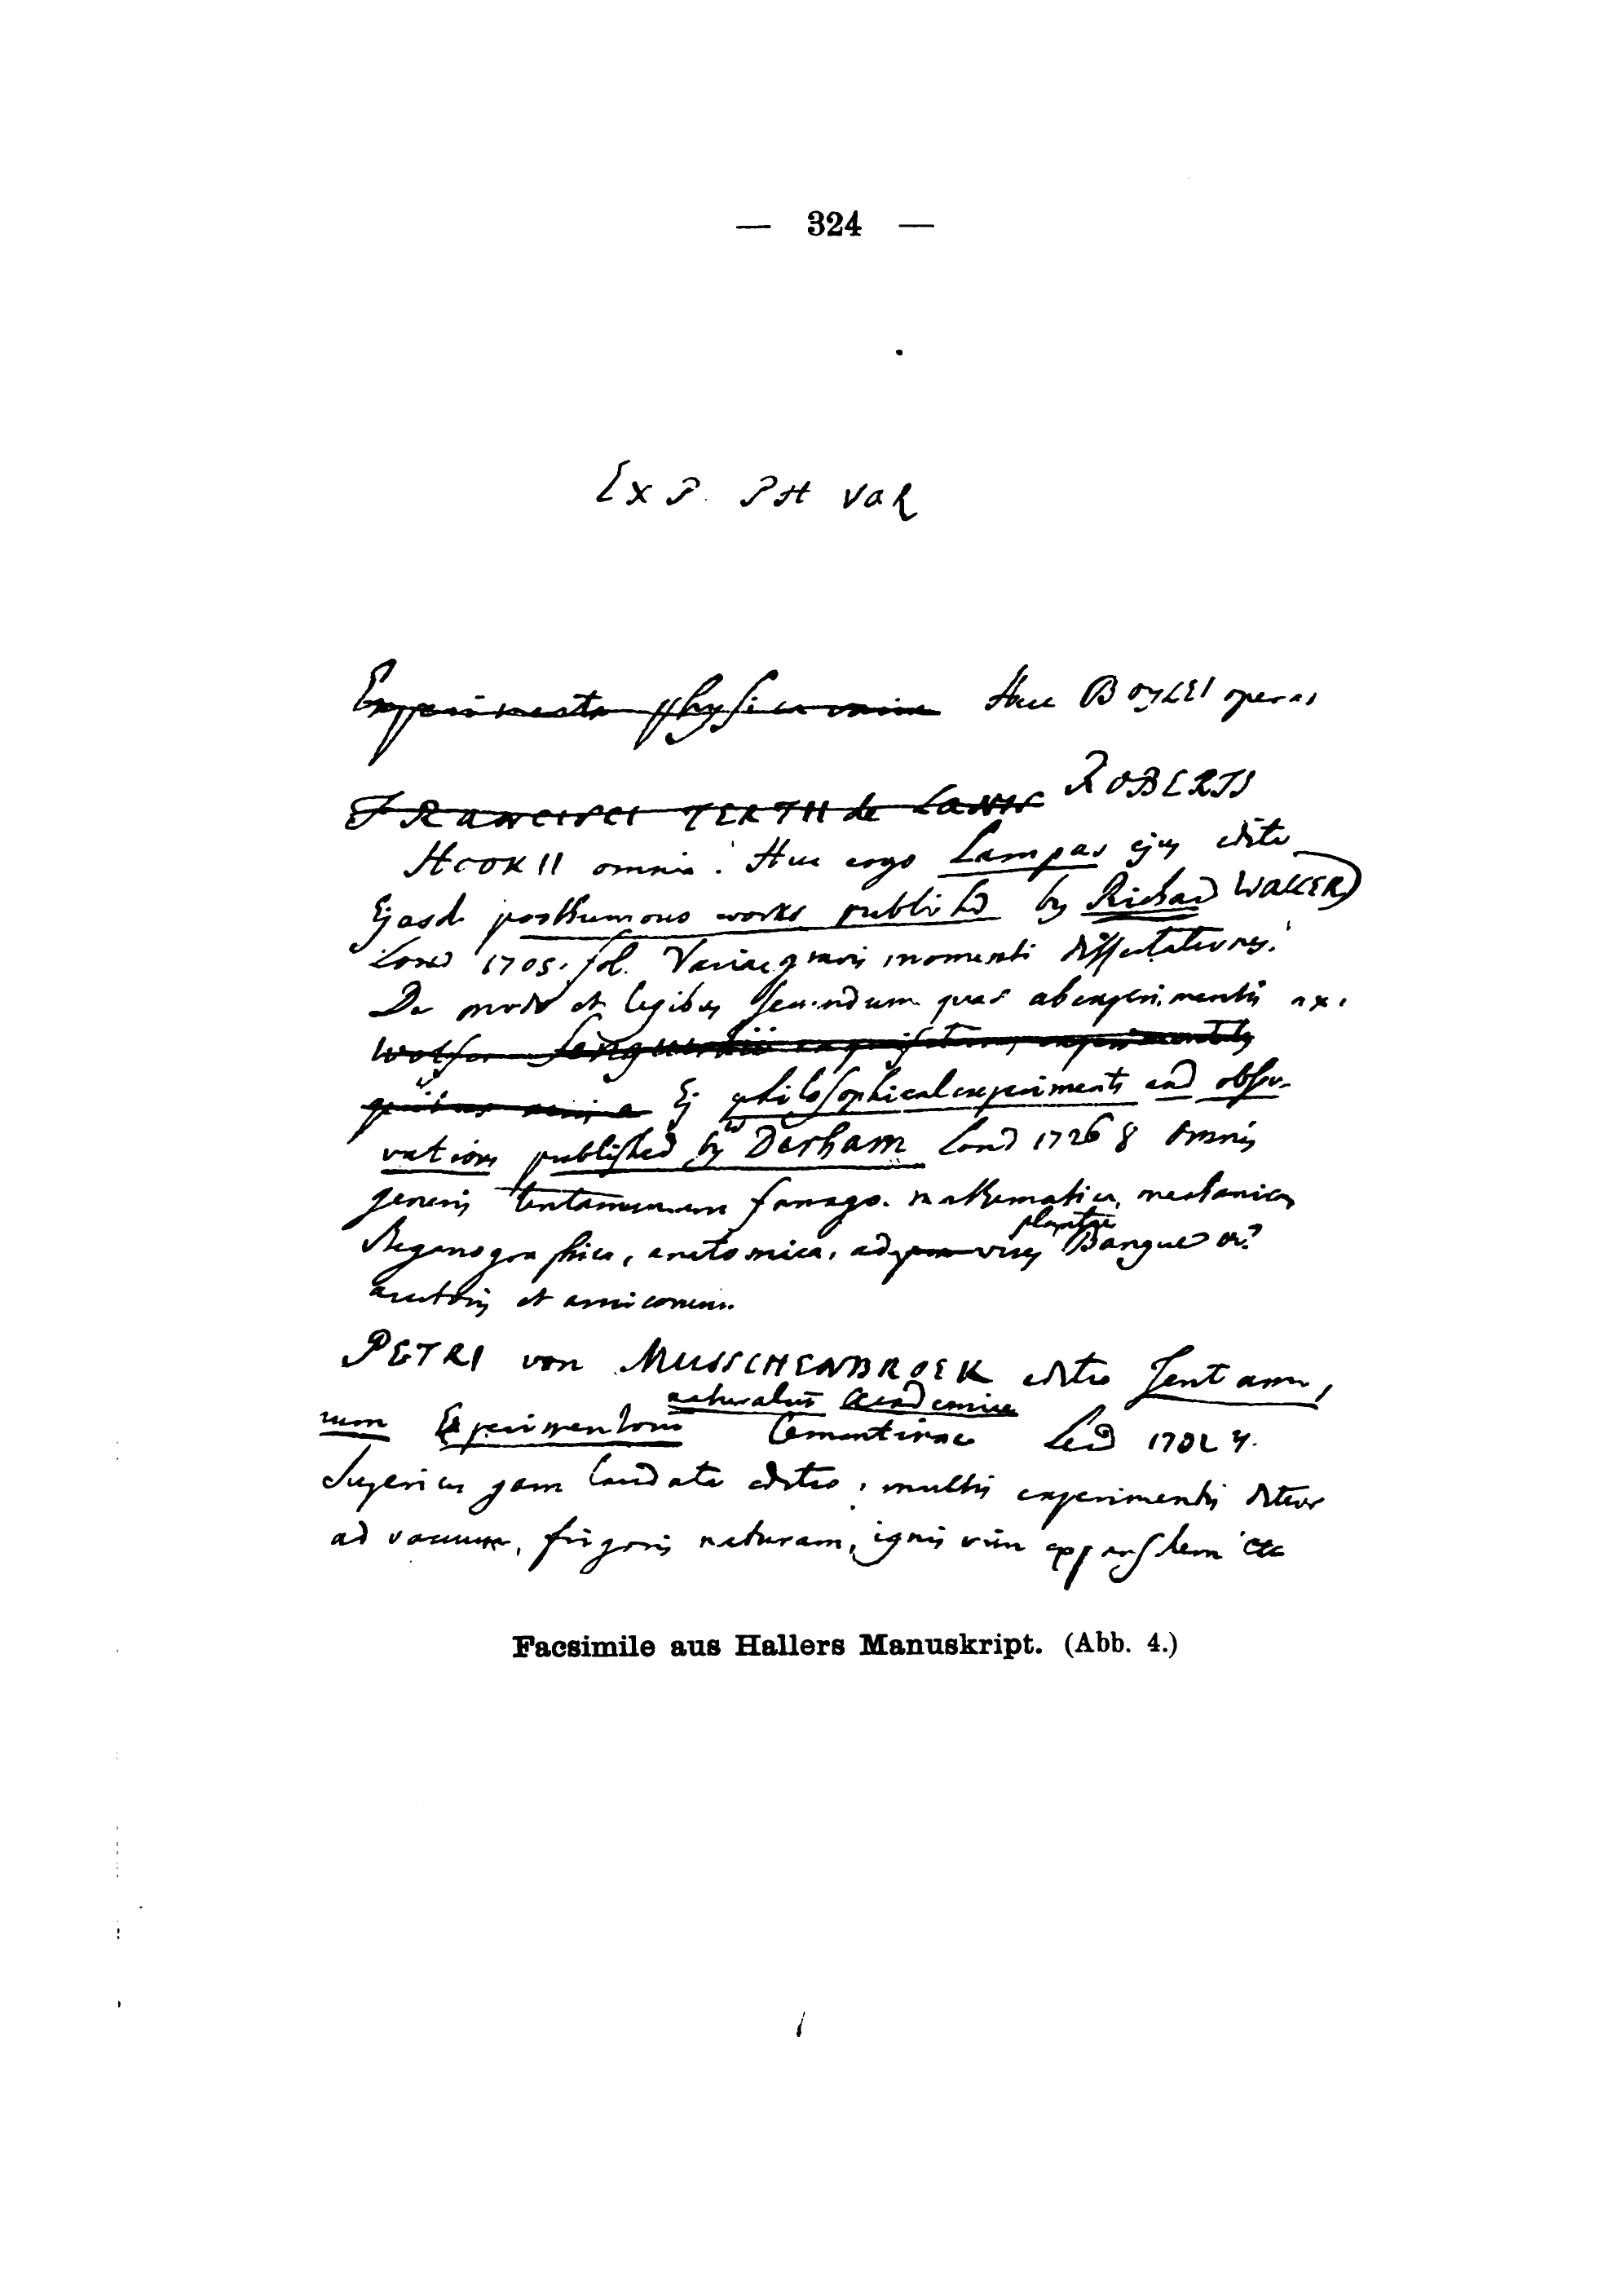 — 324 —
Exp. PH VaR
Experimenta physica omnia Huc BOYLEI opera
FRANCISCI TERTII de LANIS ROBERTI
HOOKII omnia. Huc ergo Lampas ejus edita
Ejusd. posthumous works publish'd by Richard WALLER
Lond 1705. fol. Variae gravis momenti disputationes.
De modo et legibus secundum quas ab experimentis
Wolferdi Senguerdii inquisitiones experimentales
quibus Ej philosophical experiments and obser-
vations published by W Derham Lond 1726 8 omnis
generis tentaminum farrago. mathematica, mechanica,
steganographica, anatomica, ad vires plantae Bangue
auctoris et amicorum.
PETRI von MUSSCHENBROEK editio Tentami-
num Experimentorum naturalium Academiae
Cementinae Leid 17
Superius jam laudata editio, multis experimentis ditior
ad vacuum, frigoris naturam, ignis vim etc
Facsimile aus Hallers Manuskript. (Abb. 4.)